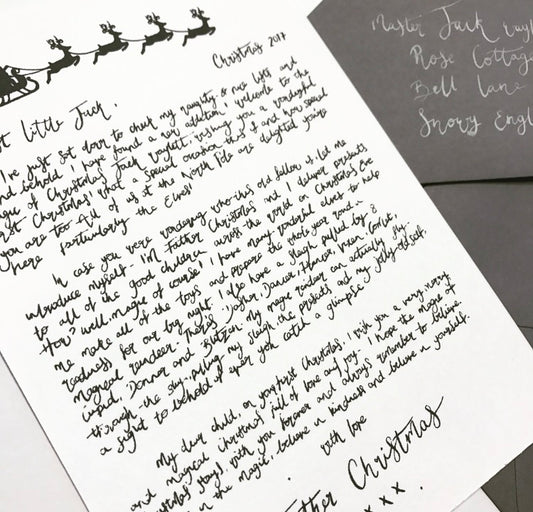 Christmas 2017
st little Jack,
I've just sat down to check my naughty & nice lists and
and behold I have found a new addition! welcome to the
magic of Christmas Jack Raylet, wishing you a wonderful
first Christmas! what a special occasion this is and how special
you are too. All of us at the North Pole are delighted you're
here particularly the Elves!
In case you were wondering who this old fellow is, let me
introduce myself. I'm Father Christmas and I deliver presents
to all of the good children across the world on Christmas Eve
How? well, magic of course! I have many wonderful elves to help
me make all of the toys and prepare the whole year round in
readiness for our big night. I also have a sleigh pulled by 8
magical reindeer. There's Dasher, Dancer, Prancer, Vixen, Comet,
Cupid, Donner and Blitzen. My magic reindeer can actually fly
through the sky, pulling my sleigh, the presents and my jolly old self.
a sight to behold if ever you catch a glimpse!
My dear child, on your first Christmas, I wish you a very merry
and magical Christmas full of love and joy. I hope the magic of
Christmas stays with you forever and always remember to believe
in the magic, believe in kindness and believe in yourself.
with love
ther Christmas
x x x.
Master Jack Rayl
Rose Cottage
Bell Lane
Snowy Engl